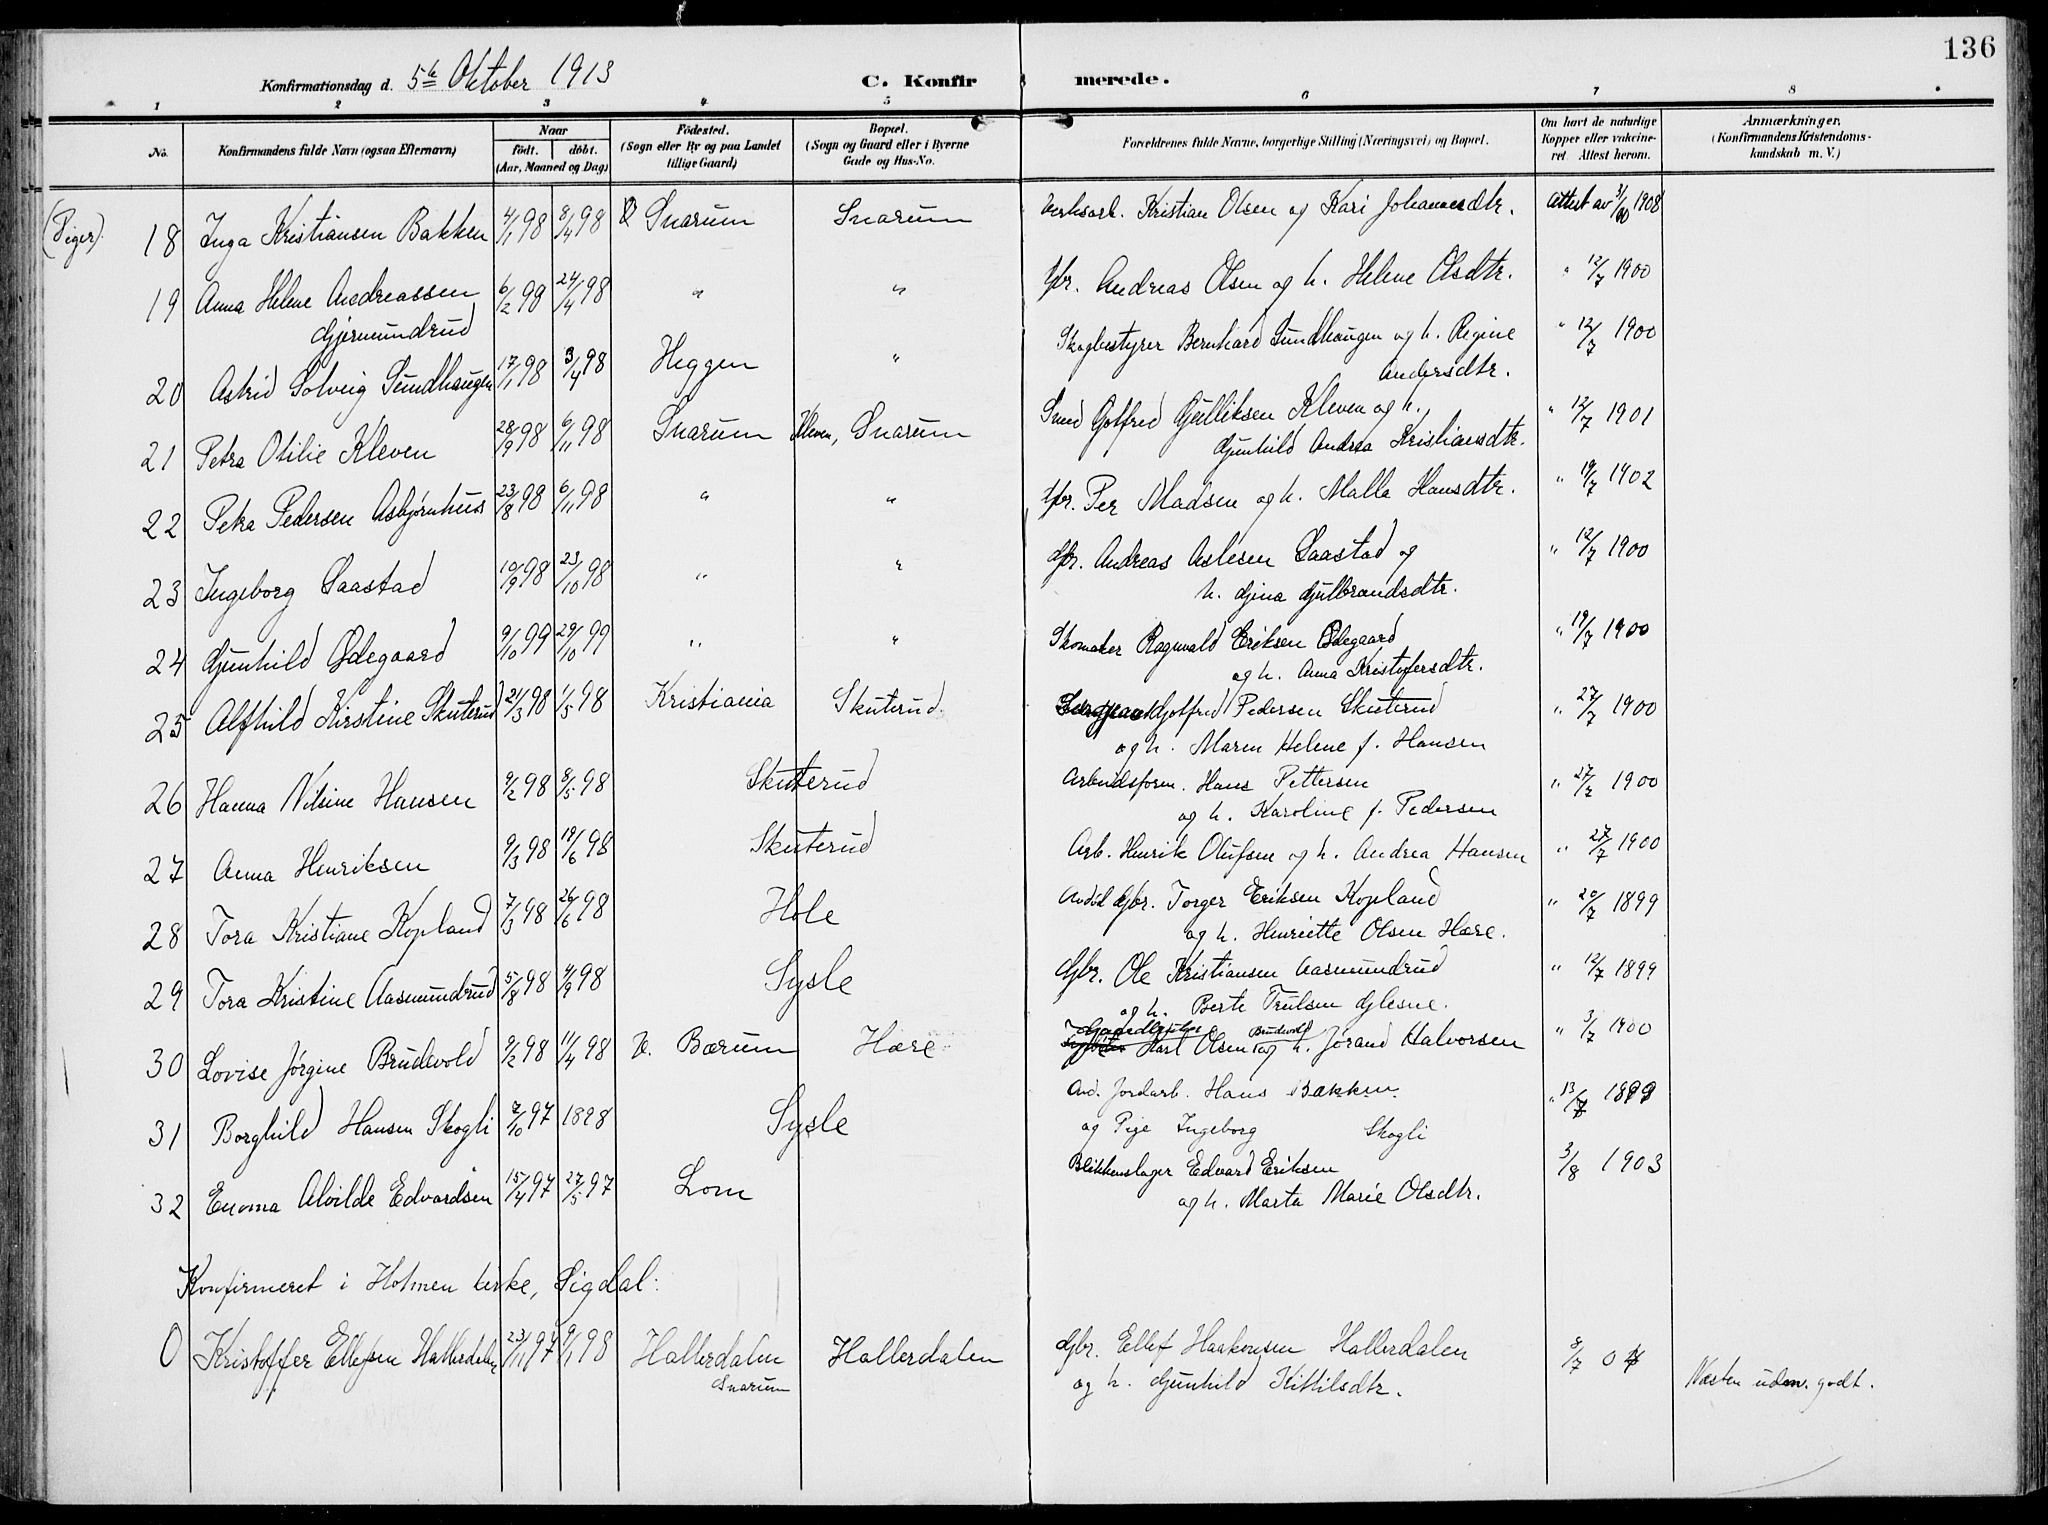 136
Konfirmationsdag d. 5te Oktober 1913 C. Konfirmerede.
1 2 3 4 5 6 7 8
No. Konfirmandens fulde Navn (ogsaa Efternavn) Naar født. døbt. (Aar, Maaned og Dag) Fødested. (Sogn eller By og paa Landet tillige Gaard) Bopæl. (Sogn og Gaard eller i Byerne Gade og Hus-No. Forældrenes fulde Navne, borgerlige Stilling (Næringsvei) og Bopæl. Om havt de naturlige Kopper eller vakcineret. Attest herom. Anmærkninger, (Konfirmandens Kristendomskundskab m. V.)
(Piger)
18 Inga Kristiansen Bakken 4/1 98 8/4 98 Snarum Snarum Verksarb. Kristian Olsen og Kari Johannesdtr. Attest av 3/10 1908
19 Anna Helene Andreassen 6/2 99 24/4 98 " " Gbr. Andreas Olsen og h. Helene Olsdtr. " 12/7 1900
Gjermundrud
20 Astrid Solveig Sundhaugen 17/1 98 3/4 98 Heggen " Skogbestyrer Bernhard Sundhaugen og h. Regine " 12/7 1900
Andersdtr.
21 Petra Otilie Kleven 28/9 98 6/11 98 Snarum Kleven, Snarum Smed Gotfred Gulliksen Kleven og h. " 12/7 1901
Gunhild Andrea Kristiansdtr.
22 Petra Pedersen Asbjørnhus 23/8 98 6/11 98 " " Gbr. Per Madsen og h. Malla Hansdtr. " 19/7 1902
23 Ingeborg Saastad 10/9 98 23/10 98 " " Gbr. Andreas Aslesen Saastad og " 12/7 1900
h. Gjina Gulbrandsdtr.
24 Gunhild Ødegaard 9/10 99 29/10 99 " " Skomaker Ragnvald Eriksen Ødegaard " 19/7 1900
og h. Anna Kristofersdtr.
25 Alfhild Kirstine Skuterud 21/3 98 1/5 98 Kristiania Skuterud Gotfred Pedersen Skuterud " 27/7 1900
og h. Maren Helene f. Hansen
26 Hanna Nilsine Hansen 9/2 98 8/5 98 Skuterud Arbeidsform. Hans Pettersen " 27/7 1900
og h. Karoline f. Pedersen
27 Anna Henriksen 9/3 98 19/6 98 Skuterud Arb. Henrik Olufsen og h. Andrea Hansen " 27/7 1900
28 Tora Kristiane Kopland 7/3 98 26/6 98 Hole Avdød Gbr. Torger Eriksen Kopland " 20/7 1899
og h. Henriette Olsen Hære.
29 Tora Kristine Aasmundrud 5/8 98 4/9 98 Sysle Gbr. Ole Kristiansen Aasmundrud " 12/7 1899
og h. Berte Trulsen Glesne.
30 Lovise Jørgine Brudevold 9/2 98 11/4 98 V. Bærum Hære Karl Olsen Brudevold og h. Jørand Halvorsen " 3/7 1900
31 Borghild Hansen Skogli 7/10 97 1898 Sysle Avd. Jordarb. Hans Bakken " 13/7 1899
og Pige Ingeborg Skogli
32 Emma Alvilde Edvardsen 15/4 97 27/5 97 Lom Blikkenslager Edvard Eriksen 3/8 1903
og h. Marta Marie Olsdtr.
Konfirmeret i Holmen kirke, Sigdal:
0 Kristoffer Ellefsen Hallerdalen 23/11 97 9/1 98 Hallerdalen Hallerdalen Gbr. Ellef Haakonsen Hallerdalen 8/7 04
Snarum og h. Gunhild Kittilsdtr. Næsten udm. godt.